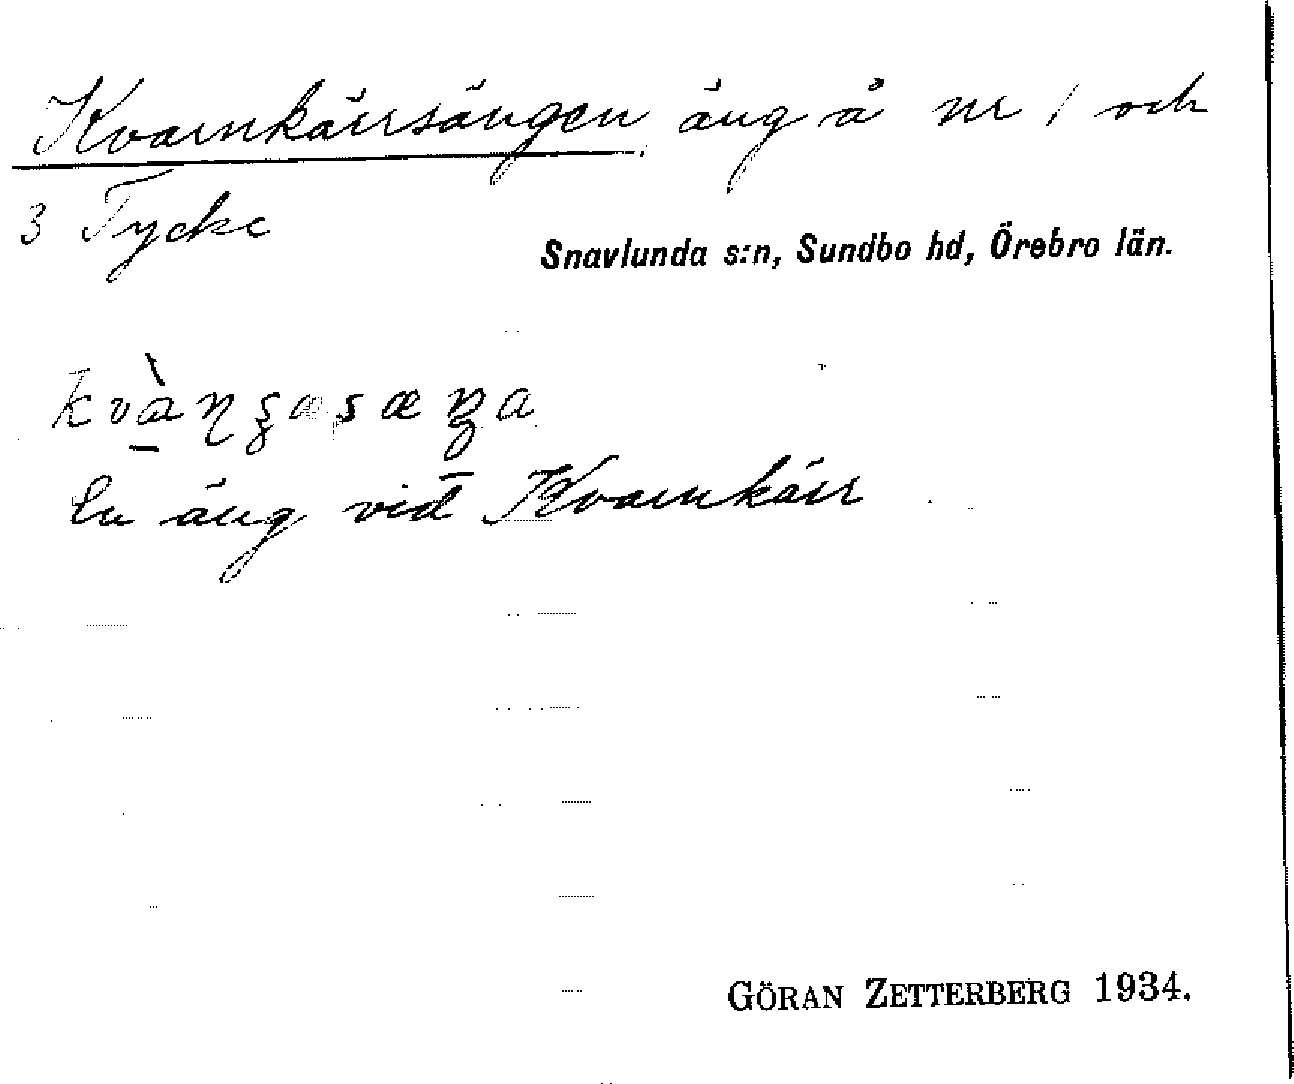 Kvarnkärrsängen, äng å nr 1 och
3 Tycke
Snavlunda s:n, Sundbo hd, Örebro län.
En äng vid Kvarnkärr
GÖRAN ZETTERBERG 1934.